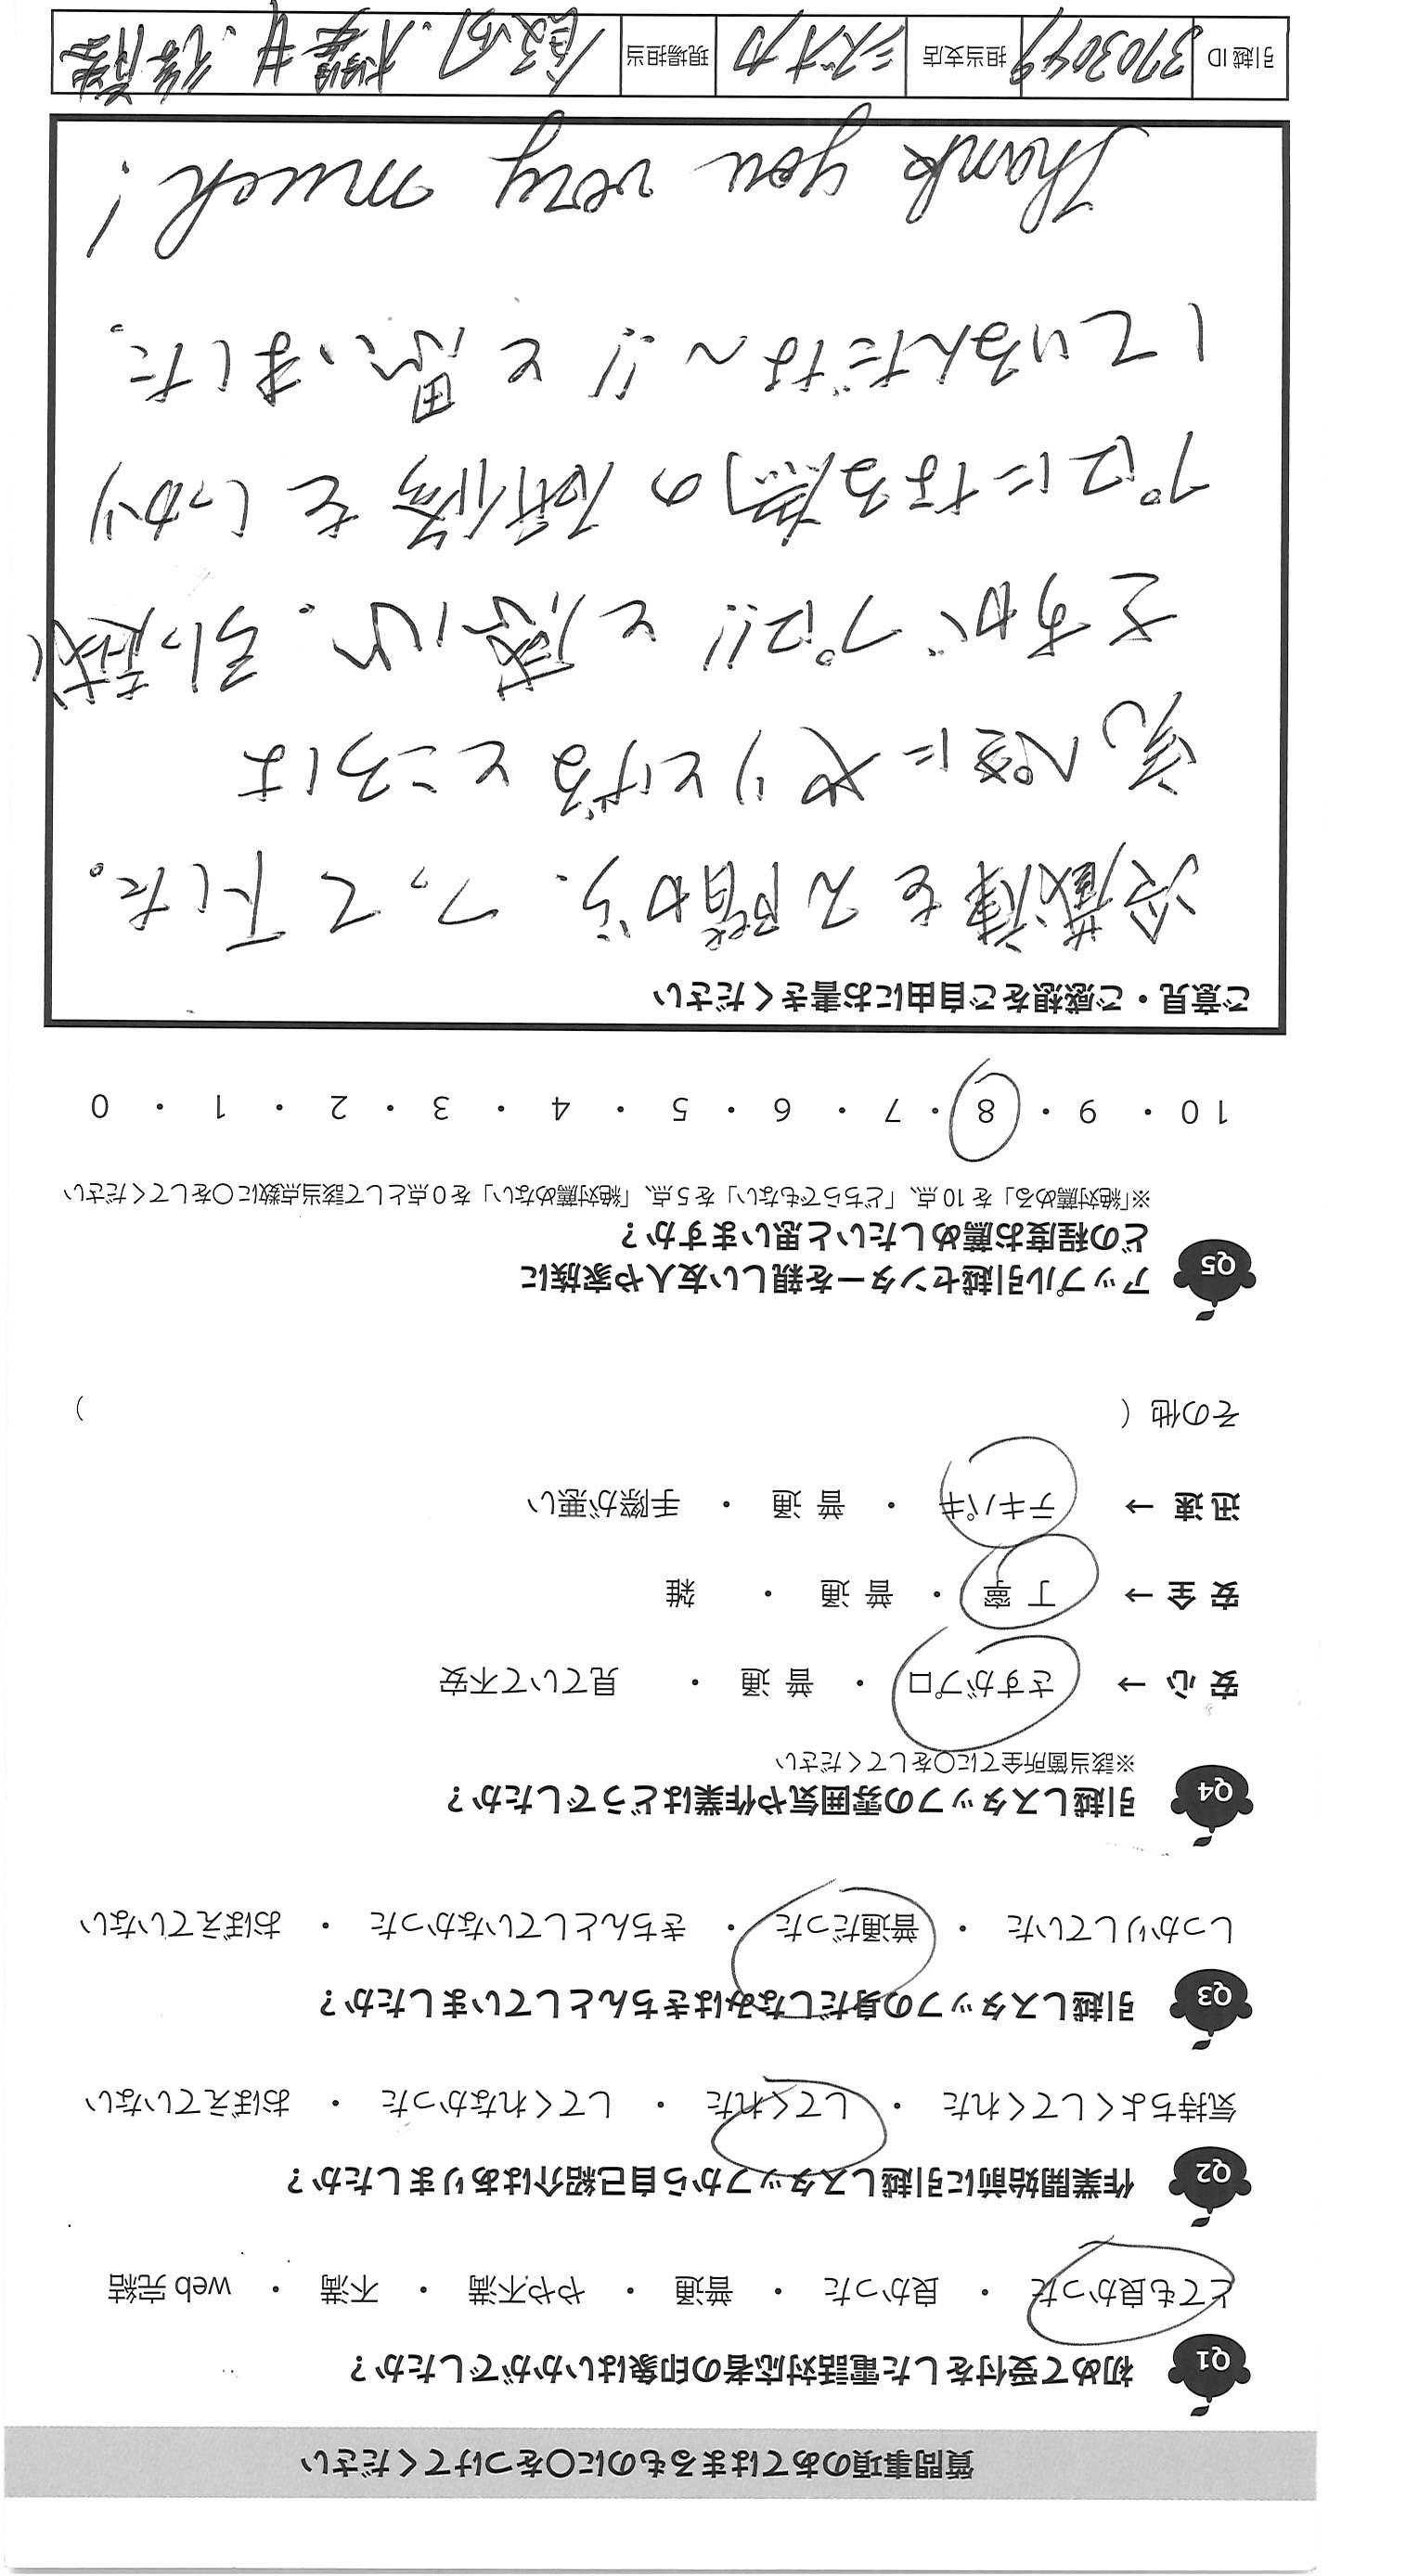 質問事項のあてはまるものに〇をつけてください
Q1 初めて受付をした電話対応者の印象はいかがでしたか?
とても良かった ・ 良かった ・ 普通 ・ やや不満 ・ 不満 ・ web 完結
Q2 作業開始前に引越しスタッフから自己紹介はありましたか?
気持ちよくしてくれた ・ してくれた ・ してくれなかった ・ おぼえていない
Q3 引越しスタッフの身だしなみはきちんとしていましたか?
しっかりしていた ・ 普通だった ・ きちんとしていなかった ・ おぼえていない
Q4 引越しスタッフの雰囲気や作業はどうでしたか?
※該当箇所全てに〇をしてください
安 心 → さすがプロ ・ 普 通 ・ 見ていて不安
安 全 → 丁 寧 ・ 普 通 ・ 雑
迅 速 → テキパキ ・ 普 通 ・ 手際が悪い
その他 ( )
Q5 アップル引越センターを親しい友人や家族に
どの程度お薦めしたいと思いますか?
※「絶対薦める」を 10 点、「どちらでもない」を 5 点、「絶対薦めない」を 0 点として該当点数に〇をしてください
10 ・ 9 ・ 8 ・ 7 ・ 6 ・ 5 ・ 4 ・ 3 ・ 2 ・ 1 ・ 0
ご意見・ご感想をご自由にお書きください
冷蔵庫を2階から、つって下した。
完ぺきにやりとげるところは
さすがプロ!!と感心。引っ越し
プロになる為の研修をしっかり
しているんだな〜!!と思いました。
Thank you very much!
引越 ID 3703049 担当支店 シズオカ 現場担当